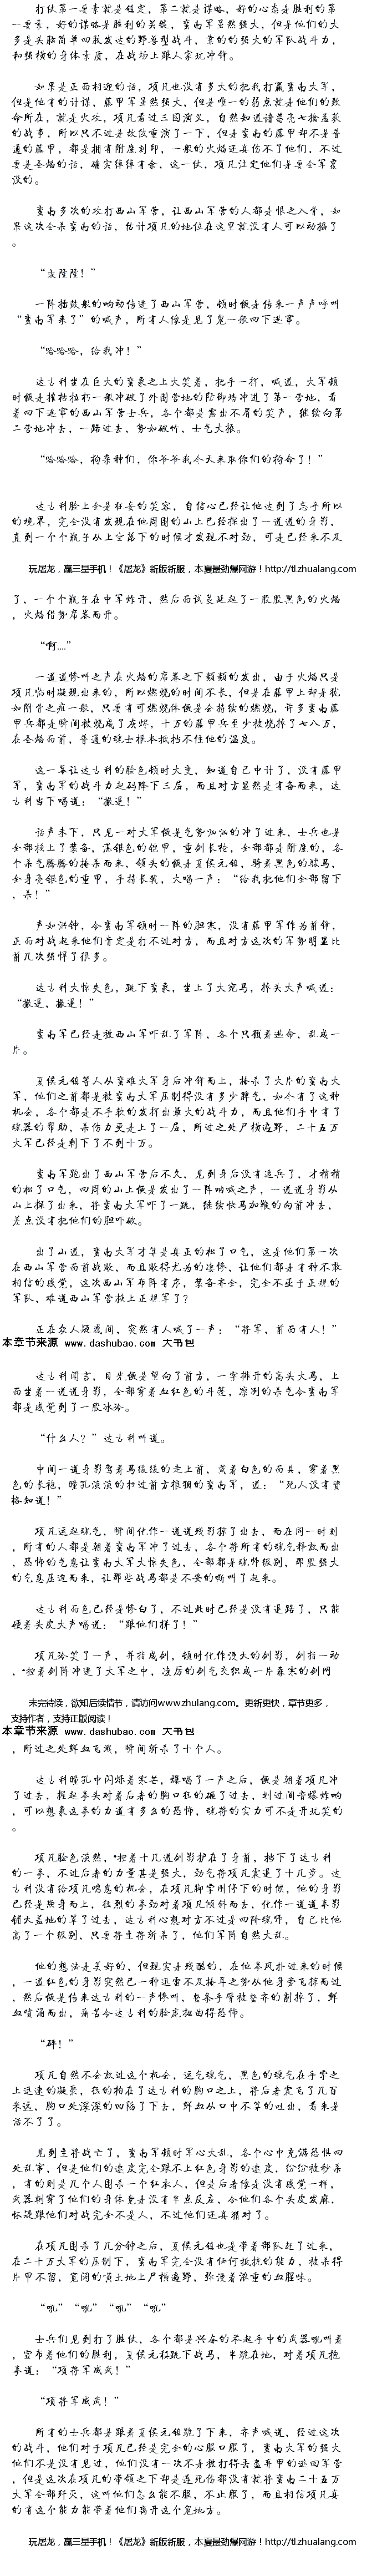 打仗第一要素就是稳定，第二就是谋略，好的心态是胜利的第
一要素，好的谋略是胜利的关键，蛮南军虽然强大，但是他们的大
多是头脑简单四肢发达的野兽型战斗，靠的的强大的军队战斗力，
和强横的身体素质，在战场上跟人家玩冲锋。
如果是正面相迎的话，项凡也没有多大的把我打赢蛮南大军，
但是他有的计谋，藤甲军虽然强大，但是唯一的弱点就是他们的致
命所在，就是火攻，项凡看过三国演义，自然知道诸葛亮七擒孟获
的战事，所以只不过是故伎重演了一下，但是蛮南的藤甲却不是普
通的藤甲，都是拥有附魔刻印，一般的火焰还真伤不了他们，不过
要是圣焰的话，确实绰绰有余，这一仗，项凡注定他们是要全军覆
没的。
蛮南多次的攻打西山军营，让西山军营的人都是恨之入骨，如
果这次全杀蛮南的话，估计项凡的地位在这里就没有人可以动摇了
。
“轰隆隆！”
一阵擂鼓般的响动传进了西山军营，顿时便是传来一声声呼叫
“蛮南军来了”的喊声，所有人像是见了鬼一般四下逃窜。
“哈哈哈，给我冲！”
这古利坐在巨大的蛮象之上大笑着，把手一挥，喊道，大军顿
时便是摧枯拉朽一般冲破了外围营地的防御墙冲进了第一营地，看
着四下逃窜的西山军营士兵，各个都是露出不屑的笑声，继续向第
二营地冲去，一路过去，势如破竹，士气大振。
“哈哈哈，狗杂种们，你爷爷我今天来取你们的狗命了！”
这古利脸上全是狂妄的笑容，自信心已经让他达到了忘乎所以
的境界，完全没有发现在他周围的山上已经探出了一道道的身影，
直到一个个瓶子从上空落下的时候才发现不对劲，可是已经来不及
玩屠龙，赢三星手机！《屠龙》新版新服，本夏最劲爆网游！http://tl.zhulang.com
了，一个个瓶子在中军炸开，然后面试蔓延起了一股股黑色的火焰
，火焰借势席卷而开。
“啊....”
一道道惨叫之声在火焰的席卷之下频频的发出，由于火焰只是
项凡临时凝现出来的，所以燃烧的时间不长，但是在藤甲上却是犹
如附骨之疽一般，只要有可燃烧体便是会持续的燃烧，许多蛮南藤
甲兵都是瞬间被烧成了灰烬，十万的藤甲兵至少被烧掉了七八万，
在圣焰面前，普通的魂士根本抵挡不住他的温度。
这一幕让这古利的脸色顿时大变，知道自己中计了，没有藤甲
军，蛮南军的战斗力起码降下三层，而且对方显然是有备而来，这
古利当下喝道：“撤退！”
话声未下，只见一对大军便是气势汹汹的冲了过来，士兵也是
全部换上了装备，湛银色的铠甲，重剑长枪，全部都是附魔的，各
个杀气腾腾的掩杀而来，领头的便是夏侯元继，骑着黑色的骏马，
全身亮银色的重甲，手持长戟，大喝一声：“给我把他们全部留下
，杀！”
声如洪钟，令蛮南军顿时一阵的胆寒，没有藤甲军作为前锋，
正面对战起来他们肯定是打不过对方，而且对方这次的军势明显比
前几次强悍了很多。
这古利大惊失色，跳下蛮象，坐上了大宛马，掉头大声喊道：
“撤退，撤退！”
蛮南军已经是被西山军吓乱了军阵，各个只顾着逃命，乱成一
片。
夏侯元继等人从蛮难大军身后冲锋而上，掩杀了大片的蛮南大
军，他们之前都是被蛮南大军压制得没有多少脾气，如今有了这种
机会，各个都是不手软的发挥出最大的战斗力，而且他们手中有了
魂器的帮助，杀伤力更是上了一层，所过之处尸横遍野，二十五万
大军已经是剩下了不到十万。
蛮南军跑出了西山军营后不久，见到身后没有追兵了，才稍稍
的松了口气，四周的山上便是发出了一阵呐喊之声，一道道身影从
山上探了出来，将蛮南大军吓了一跳，继续快马加鞭的向前冲去，
差点没有把他们的胆吓破。
出了山道，蛮南大军才算是真正的松了口气，这是他们第一次
在西山军营面前战败，而且败得尤为的凄惨，让他们都是有种不敢
相信的感觉，这次西山军布阵有序，装备齐全，完全不亚于正规的
军队，难道西山军营换上正规军了？
正在众人疑惑间，突然有人喊了一声：“将军，前面有人！”
本章节来源 www.dashubao.com 大书包
这古利闻言，目光便是望向了前方，一字排开的高头大马，上
面坐着一道道身影，全部穿着血红色的斗篷，凛冽的杀气令蛮南军
都是感觉到了一股冰冷。
“什么人？”这古利叫道。
中间一道身影驾着马缓缓的走上前，戴着白色的面具，穿着黑
色的长袍，瞳孔淡淡的扫过前方狼狈的蛮南军，道：“死人没有资
格知道！”
项凡运起魂气，瞬间化作一道道残影掠了出去，而在同一时刻
，所有的人都是朝着蛮南军冲了过去，各个将所有的魂气释放而出
，恐怖的气息让蛮南大军大惊失色，全部都是魂师级别，那股强大
的气息压迫而来，让那些战马都是不安的嘶叫了起来。
这古利面色已经是惨白了，不过此时已经是没有退路了，只能
硬着头皮大声喝道：“跟他们拼了！”
项凡冷笑了一声，并指成剑，顿时化作漫天的剑影，剑指一动
，*控着剑阵冲进了大军之中，凌厉的剑气交织成一片森寒的剑网
未完待续，欲知后续情节，请访问www.zhulang.com。更新更快，章节更多，
支持作者，支持正版阅读！
本章节来源 www.dashubao.com 大书包
，所过之处鲜血飞溅，瞬间斩杀了十个人。
这古利瞳孔中闪烁着寒芒，爆喝了一声之后，便是朝着项凡冲
了过去，握起拳头对着后者的胸口狂的砸了过去，刹过间音爆炸响
，可以想象这拳的力道有多么的恐怖，魂将的实力可不是开玩笑的
。
项凡脸色淡然，*控着十几道剑影护在了身前，挡下了这古利
的一拳，不过后者的力量甚是强大，劲气将项凡震退了十几步。这
古利没有给项凡喘息的机会，在项凡脚掌刚停下的时候，他的身影
已经是欺身而上，狂烈的拳劲对着项凡倾斜而去，化作一道道拳影
铺天盖地的罩了过去，这古利心想对方不过是四阶魂师，自己比他
高了一个级别，只要将主将斩杀了，他们军阵自然大乱。
他的想法是美好的，但现实是残酷的，在他拳风扑过来的时候
，一道红色的身影突然已一种迅雷不及掩耳之势从他身旁飞掠而过
，然后便是传来这古利的一声惨叫，整条手臂被整齐的割掉了，鲜
血喷涌而出，痛苦令这古利的脸庞扭曲得恐怖。
“砰！”
项凡自然不会放过这个机会，运气魂气，黑色的魂气在手掌之
上迅速的凝聚，狂的拍在了这古利的胸口之上，将后者震飞了几百
米远，胸口处深深的凹陷了下去，鲜血从口中不停的吐出，看来是
活不了了。
见到主将战亡了，蛮南军顿时军心大乱，各个心中充满恐惧四
处乱窜，但是他们的速度完全跟不上红色身影的速度，纷纷被秒杀
，有的则是几个人围杀一个红衣人，但是后者像是没有感觉一样，
武器刺穿了他们的身体竟是没有半点反应，令他们各个头皮发麻，
怀疑跟他们对战完全不是人，不过他们还真猜对了。
在项凡围杀了几分钟之后，夏侯元继也是带着部队赶了过来，
在二十万大军的压制下，蛮南军完全没有任何抵抗的能力，被杀得
片甲不留，宽阔的黄土地上尸横遍野，弥漫着浓重的血腥味。
“吼”“吼”“吼”“吼”
士兵们见到打了胜仗，各个都是兴奋的举起手中的武器吼叫着
，宣布着他们的胜利，夏侯元继跳下战马，半跪在地，对着项凡抱
手道：“项将军威武！”
“项将军威武！”
所有的士兵都是跟着夏侯元继跪了下来，齐声喊道，经过这次
的战斗，他们对于项凡已经是完全的心服口服了，蛮南大军的强大
他们不是没有见过，他们没有一次不是被打得丢盔弃甲的逃回军营
，但是这次在项凡的带领之下却是连死伤都没有就将蛮南二十五万
大军全部歼灭，这叫他们怎么能不服，不止服了，而且相信项凡真
的有这个能力能带着他们离开这个鬼地方。
玩屠龙，赢三星手机！《屠龙》新版新服，本夏最劲爆网游！http://tl.zhulang.com